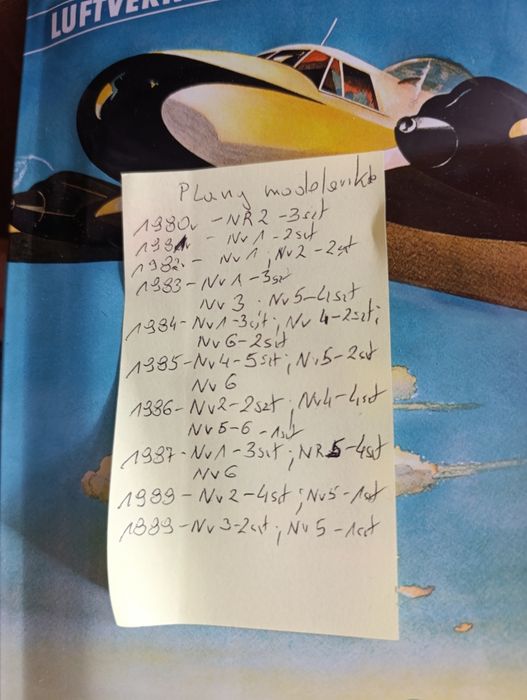 LUFTVER
Plany modelarskie
1980r - NR 2 - 3szt
1981 - Nr 1 - 2szt
1982 - Nr 1 ; Nr 2 - 2szt
1983 - Nr 1 - 3szt
Nr 3 . Nr 5 - 4szt
1984 - Nr 1 - 3szt ; Nr 4 - 2szt ;
Nr 6 - 2szt
1985 - Nr 4 - 5szt ; Nr 5 - 2szt
Nr 6
1986 - Nr 2 - 2szt ; Nr 4 - 4szt
Nr 5 - 6 - 1szt
1987 - Nr 1 - 3szt ; NR 5 - 4szt
Nr 6
1989 - Nr 2 - 4szt ; Nr 5 - 1szt
1989 - Nr 3 - 2szt ; Nr 5 - 1szt